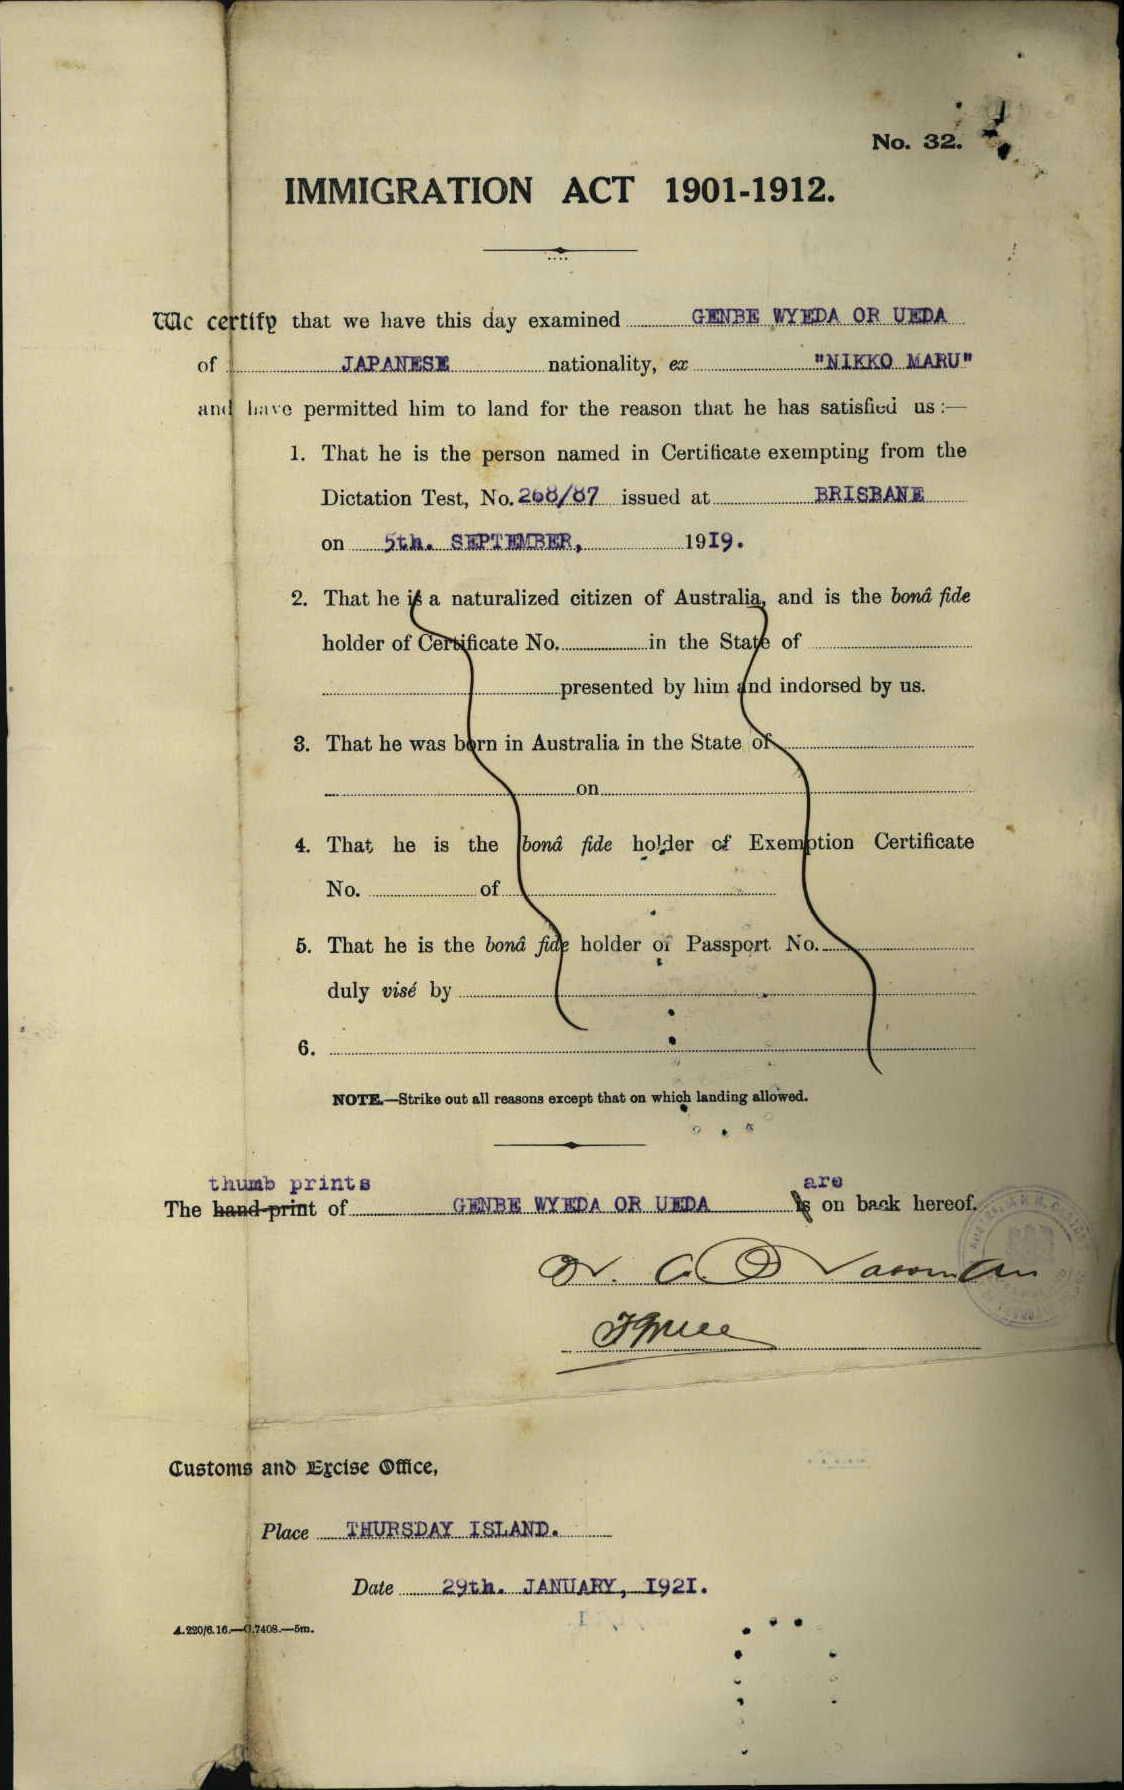 No. 32.
IMMIGRATION ACT 1901-1912.
We certify that we have this day examined GENBE WYEDA OR UEDA
of JAPANESE nationality, ex "NIKKO MARU"
and have permitted him to land for the reason that he has satisfied us:—
1. That he is the person named in Certificate exempting from the
Dictation Test, No. 268/87 issued at BRISBANE
on 5th. SEPTEMBER, 1919.
2. That he is a naturalized citizen of Australia, and is the bonâ fide
holder of Certificate No. in the State of
presented by him and indorsed by us.
3. That he was born in Australia in the State of
on
4. That he is the bonâ fide holder of Exemption Certificate
No. of
5. That he is the bonâ fide holder of Passport No.
duly visé by
6.
NOTE.—Strike out all reasons except that on which landing allowed.
thumb prints are
The hand-print of GENBE WYEDA OR UEDA is on back hereof.
Customs and Excise Office,
Place THURSDAY ISLAND.
Date 29th. JANUARY, 1921.
A.220/6.16.—C.7408.—5m.